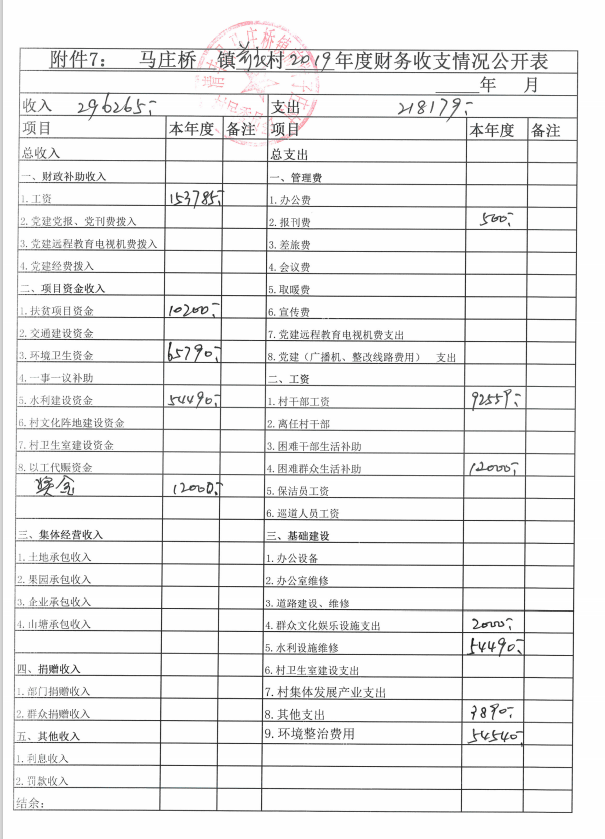 附件7： 马庄桥 镇 村 2019年度财务收支情况公开表
年 月
收入 296265.- 支出 218179.-
项目 本年度 备注 项目 本年度 备注
总收入 总支出
一、财政补助收入 一、管理费
1.工资 153785.- 1.办公费
2.党建党报、党刊费拨入 2.报刊费 500.-
3.党建远程教育电视机费拨入 3.差旅费
4.党建经费拨入 4.会议费
二、项目资金收入 5.取暖费
1.扶贫项目资金 10200.- 6.宣传费
2.交通建设资金 7.党建远程教育电视机费支出
3.环境卫生资金 65790.- 8.党建（广播机、整改线路费用） 支出
4.一事一议补助 二、工资
5.水利建设资金 54490.- 1.村干部工资 92559.-
6.村文化阵地建设资金 2.离任村干部
7.村卫生室建设资金 3.困难干部生活补助
8.以工代赈资金 4.困难群众生活补助 12000.-
奖金 12000.- 5.保洁员工资
6.巡道人员工资
三、集体经营收入 三、基础建设
1.土地承包收入 1.办公设备
2.果园承包收入 2.办公室维修
3.企业承包收入 3.道路建设、维修
4.山塘承包收入 4.群众文化娱乐设施支出 2000.-
5.水利设施维修 54490.-
四、捐赠收入 6.村卫生室建设支出
1.部门捐赠收入 7.村集体发展产业支出
2.群众捐赠收入 8.其他支出
五、其他收入 9.环境整治费用 54540.-
1.利息收入
2.罚款收入
结余：